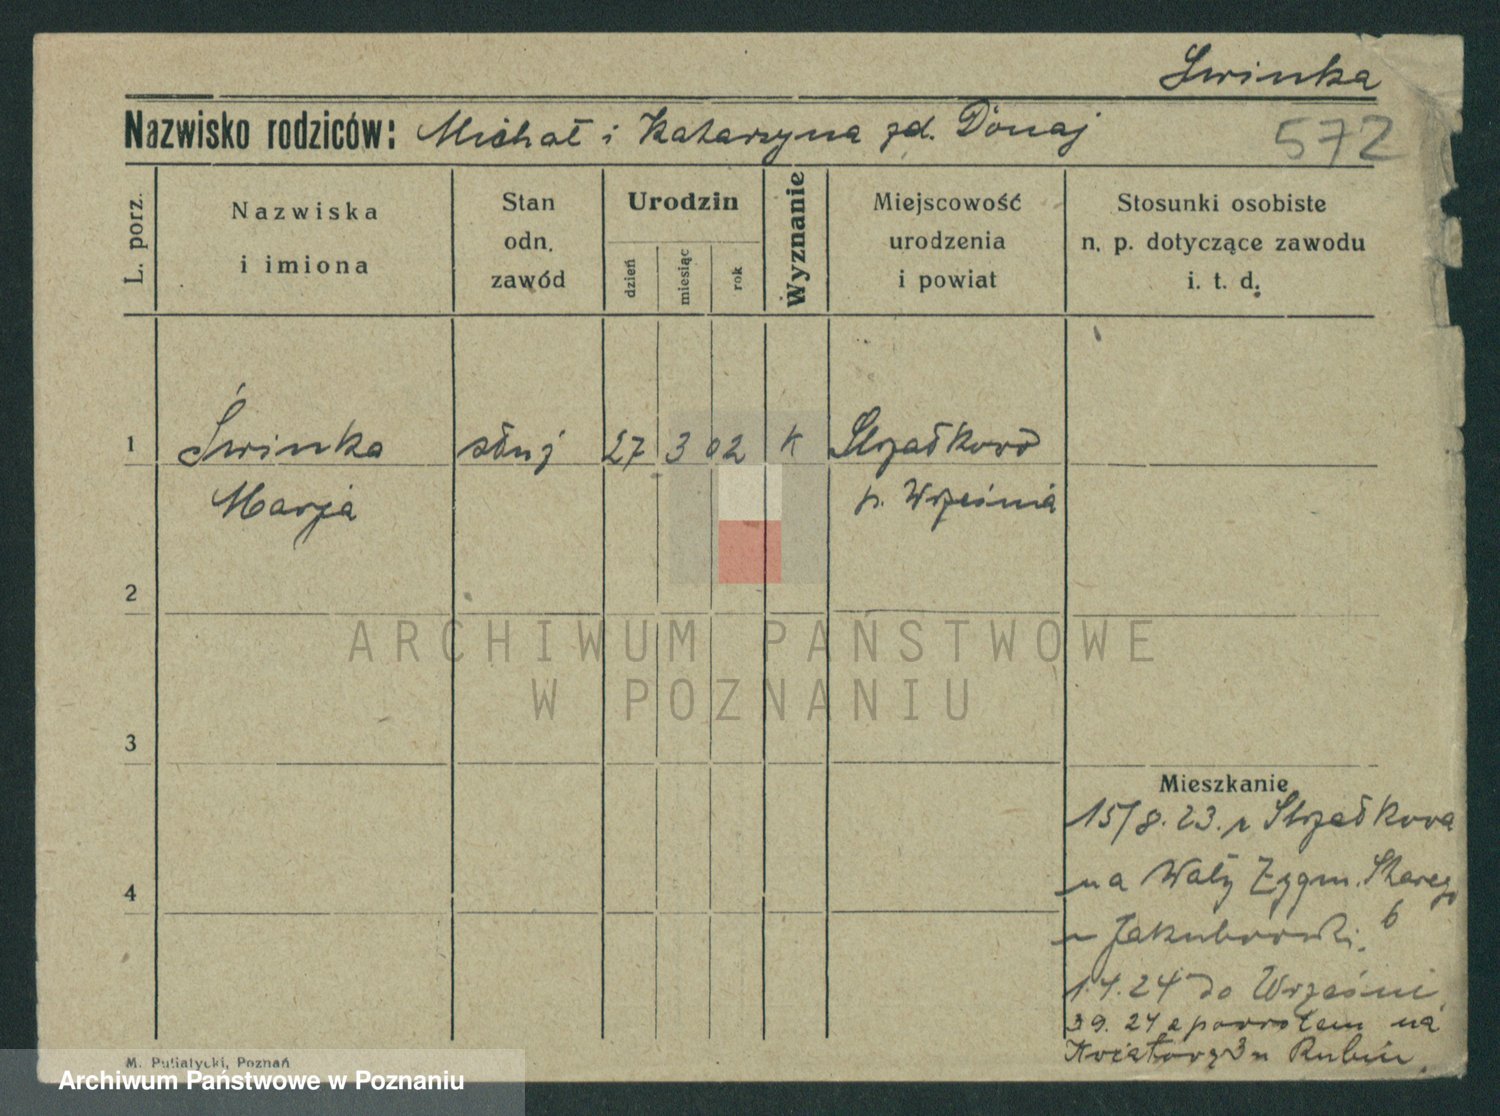 Świnka
Nazwisko rodziców: Michał i Katarzyna zd. Donaj
572
L. porz.
Nazwiska
i imiona
Stan
odn.
zawód
Urodzin
dzień
miesiąc
rok
Wyznanie
Miejscowość
urodzenia
i powiat
Stosunki osobiste
n. p. dotyczące zawodu
i. t. d.
1
Świnka
służ
27
3
02
K
Strzałkowo
Marja
p. Września
2
ARCHIWUM PAŃSTWOWE
W POZNANIU
3
Mieszkanie
15/8.23. z Strzałkowa
4
na Wały Zygm. Starego
6
u Jakubowski.
1.4.24 do Wrześni
3 9. 24 z powrotem na
3 u Rubin
M. Putiatycki, Poznań
Archiwum Państwowe w Poznaniu